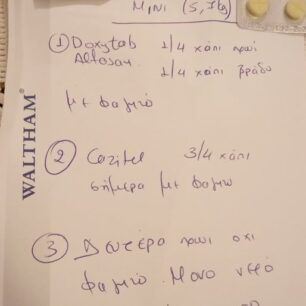 MINI (5,7kg)
① Doxytab 1/4 χάπι πρωί
Altosan. 1/4 χάπι βράδυ
με φαγητό
② Cazitel 3/4 χάπι
σήμερα με φαγητό
③ Δευτέρα πρωι οχι
φαγητό. Μονο νερό
WALTHAM®